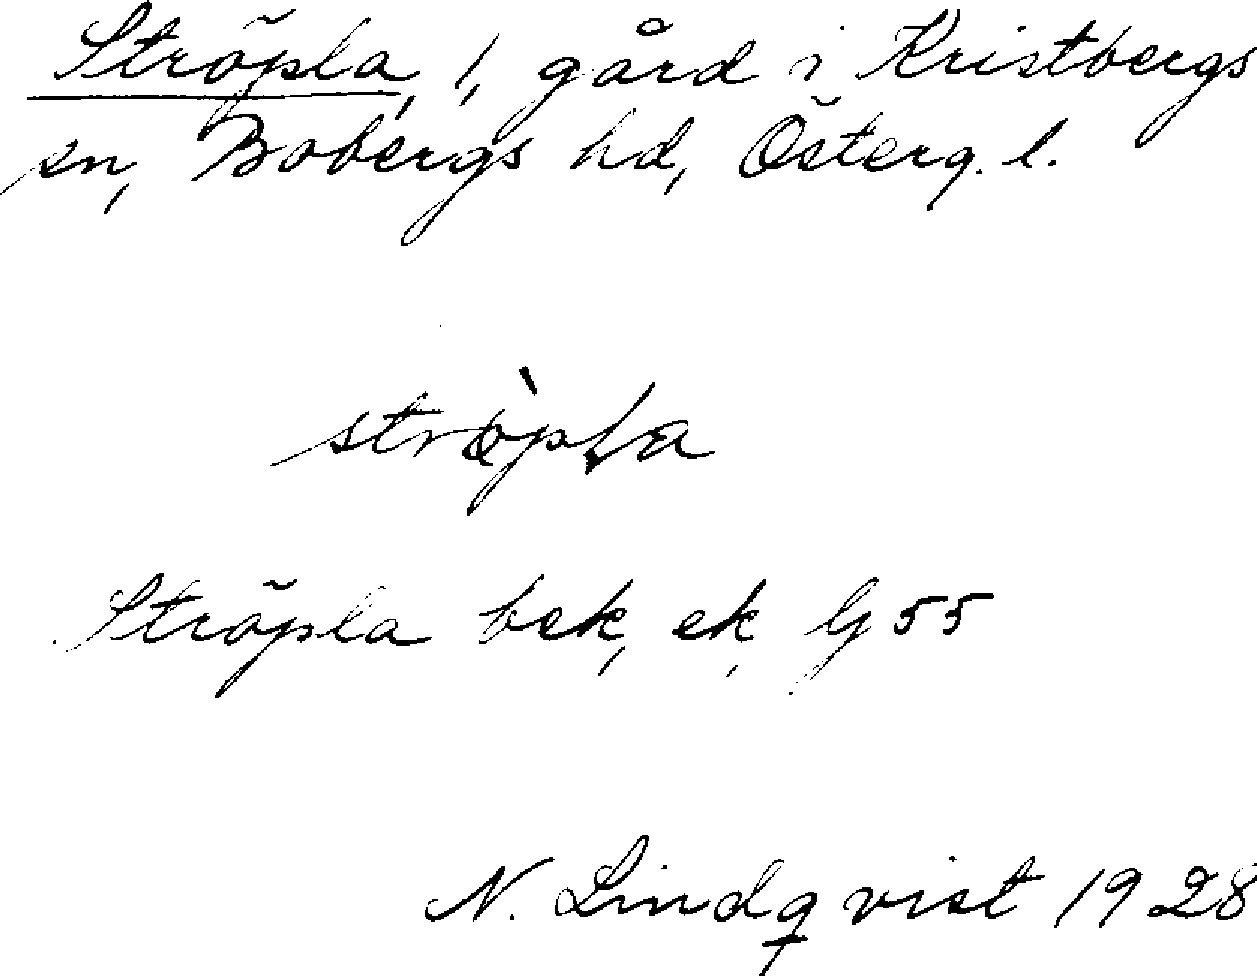 Ströpla, 1, gård i Kristbergs
sn, Bobergs hd, Österg. l.
strö̀pƚa
Ströpla bek, ek, G 55
N. Lindqvist 1928